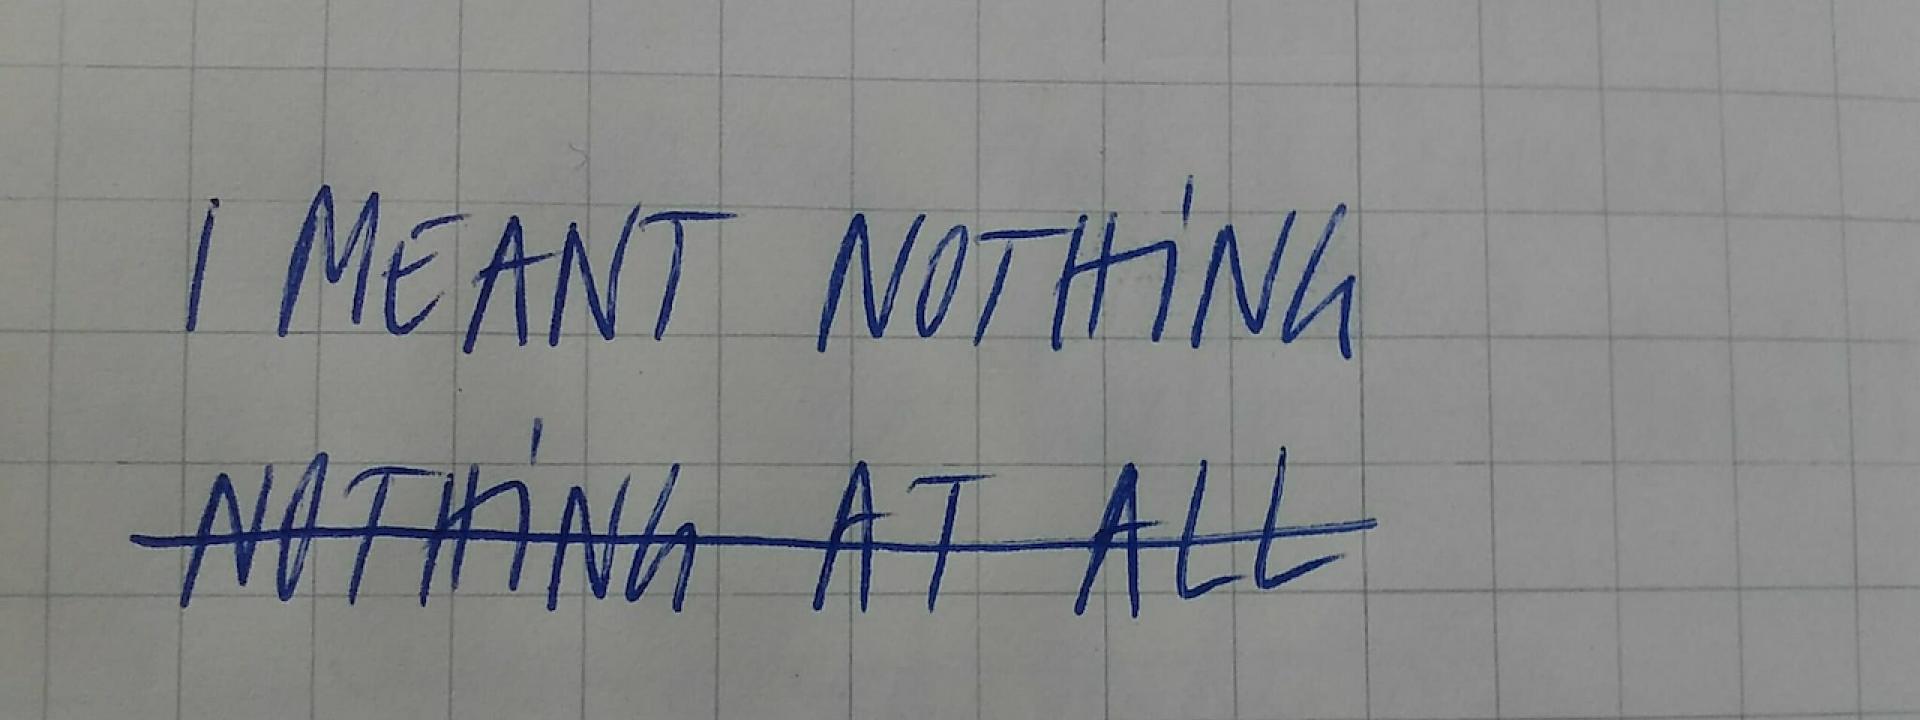 I MEANT NOTHiNG
NOTHiNG AT ALL